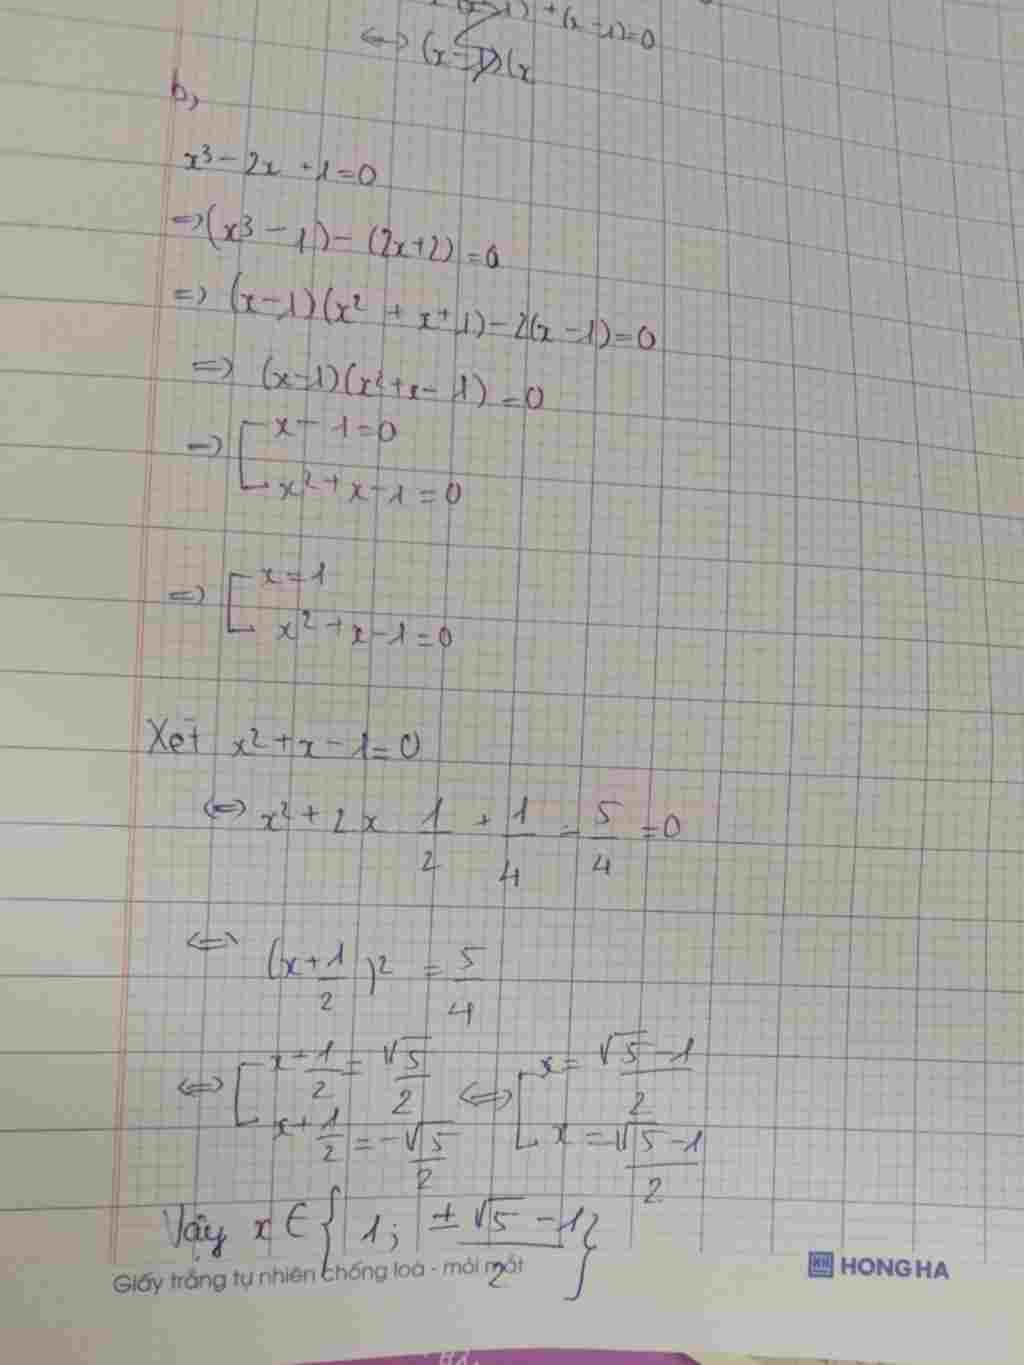 +(x-1)=0
⇔ (x-1)(x
b,
x³ - 2x + 1 = 0
=> (x³ - 1) - (2x+2) = 0
=> (x-1)(x² + x + 1) - 2(x-1) = 0
=> (x-1)(x²+x-1) = 0
=> [ x - 1 = 0
x² + x - 1 = 0
=> [ x = 1
x² + x - 1 = 0
Xét x² + x - 1 = 0
⇔ x² + 2x 1/2 + 1/4 - 5/4 = 0
⇔ (x + 1/2)² = 5/4
⇔ [ x + 1/2 = √5/2 ⇔ [ x = (√5 - 1)/2
x + 1/2 = -√5/2 x = (√5 - 1)/2
Vậy x ∈ { 1; (±√5 - 1)/2 }
Giấy trắng tự nhiên chống loá - mỏi mắt HH HONG HA